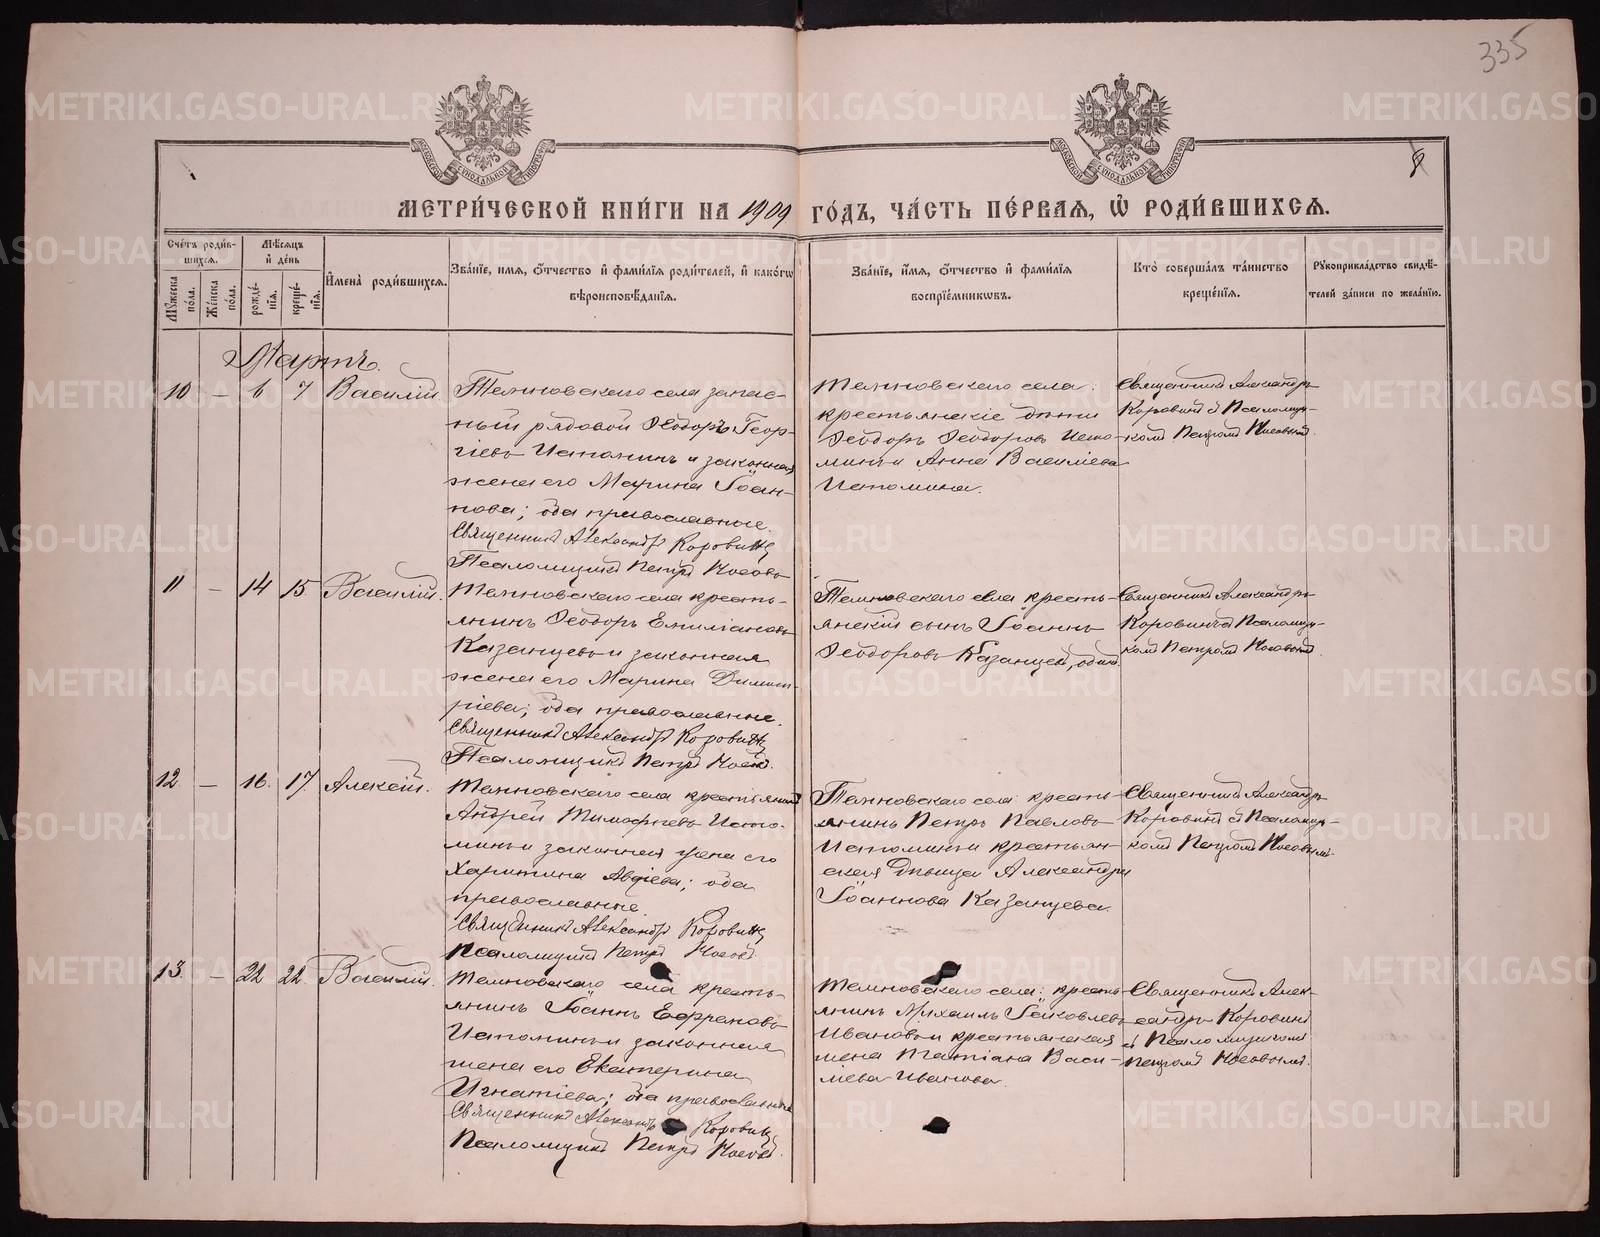 335
8
МЕТРИ́ЧЕСКОЙ КНИ́ГИ НА 1909 ГО́ДЪ, ЧА́СТЬ ПЕ́РВАѦ, Ѡ҆ РОДИ́ВШИХСѦ.
Сче́тъ роди́вшихсѧ.
Мꙋ́жеска по́ла.
Же́нска по́ла.
Мѣ́сѧцъ и҆ де́нь
рожде́нїѧ.
креще́нїѧ.
И҆мена̀ роди́вшихсѧ.
Зва́нїе, и҆́мѧ, ѻ҆́тчество и҆ фами́лїѧ роди́телей, и҆ како́гѡ вѣроисповѣ́данїѧ.
Зва́нїе, и҆́мѧ, ѻ҆́тчество и҆ фами́лїѧ воспрїе́мникѡвъ.
Кто̀ соверша́лъ та́инство креще́нїѧ.
Рꙋкоприкла́дство свидѣ́телей за́писи по жела́нїю.
Мартъ.
10 – 6 7 Василій
Темновскаго села запас-
ный рядовой Ѳеодоръ Геор-
гіевъ Истоминъ и законная
жена его Марина Іоан-
нова; оба православные.
Священникъ Александръ Коровинъ
Псаломщикъ Петръ Носовъ
Темновскаго села
крестьянскіе дѣти
Ѳеодоръ Ѳеодоровъ Исто-
минъ и Анна Василіева
Истомина.
Священникъ Александръ
Коровинъ съ Псаломщи-
комъ Петромъ Носовымъ.
11 – 14 15 Василій.
Темновскаго села кресть-
янинъ Ѳеодоръ Емиліановъ
Казанцевъ и законная
жена его Марина Димит-
ріева; оба православные.
Священникъ Александръ Коровинъ
Псаломщикъ Петръ Носовъ.
Темновскаго села кресть-
янскій сынъ Іоаннъ
Ѳеодоровъ Казанцевъ, одинъ.
Священникъ Александръ
Коровинъ съ Псаломщи-
комъ Петромъ Носовымъ.
12 – 16. 17. Алексій.
Темновскаго села крестьянинъ
Андрей Тимоѳеевъ Исто-
минъ и законная жена его
Харитина Авдіева; оба
православные.
Священникъ Александръ Коровинъ
Псаломщикъ Петръ Носовъ
Темновскаго села кресть-
янинъ Петръ Павловъ
Истоминъ и крестьян-
ская дѣвица Александра
Іоаннова Казанцева.
Священникъ Александръ
Коровинъ съ Псаломщи-
комъ Петромъ Носовымъ.
13 – 22 22 Василій.
Темновскаго села кресть-
янинъ Іоаннъ Ефремовъ
Истоминъ и законная
жена его Екатерина
Игнатіева; оба православные
Священникъ Александръ Коровинъ
Псаломщикъ Петръ Носовъ.
Темновскаго села: кресть-
янинъ Михаилъ Іаковлевъ
Ивановъ и крестьянская
жена Татіана Васи-
ліева Иванова.
Священникъ Алек-
сандръ Коровинъ
съ Псаломщикомъ
Петромъ Носовымъ.
METRIKI.GASO-URAL.RU